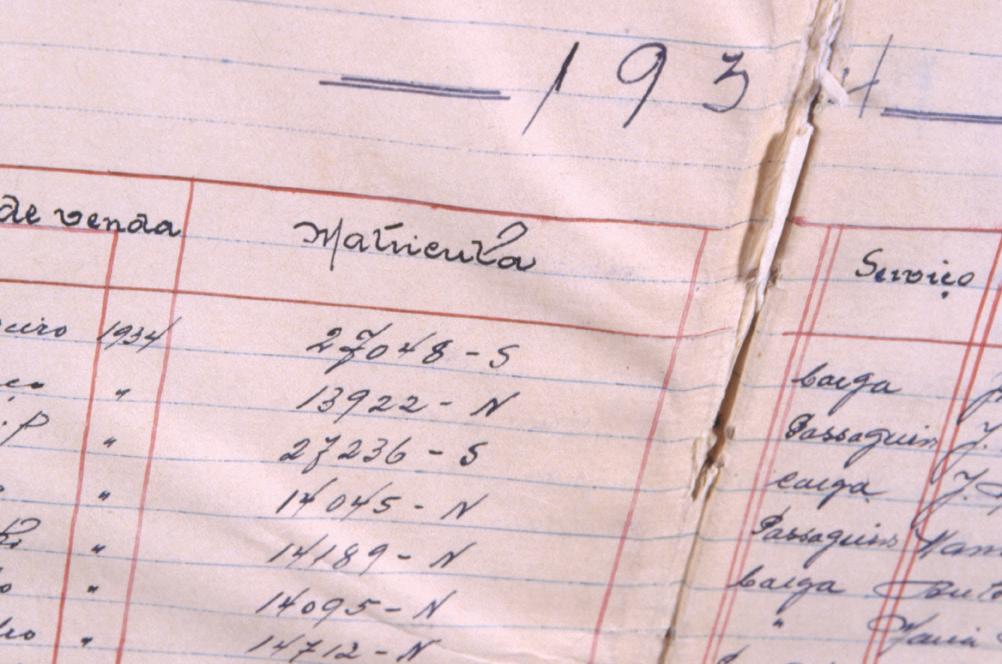 1934
de venda Matricula Serviço
eiro 1934 27048-S carga
" 13922-N Passageiros J.
" 27236-S carga J.
" 14045-N Passageiros
" 14189-N carga
" 14095-N "
" 14712-N